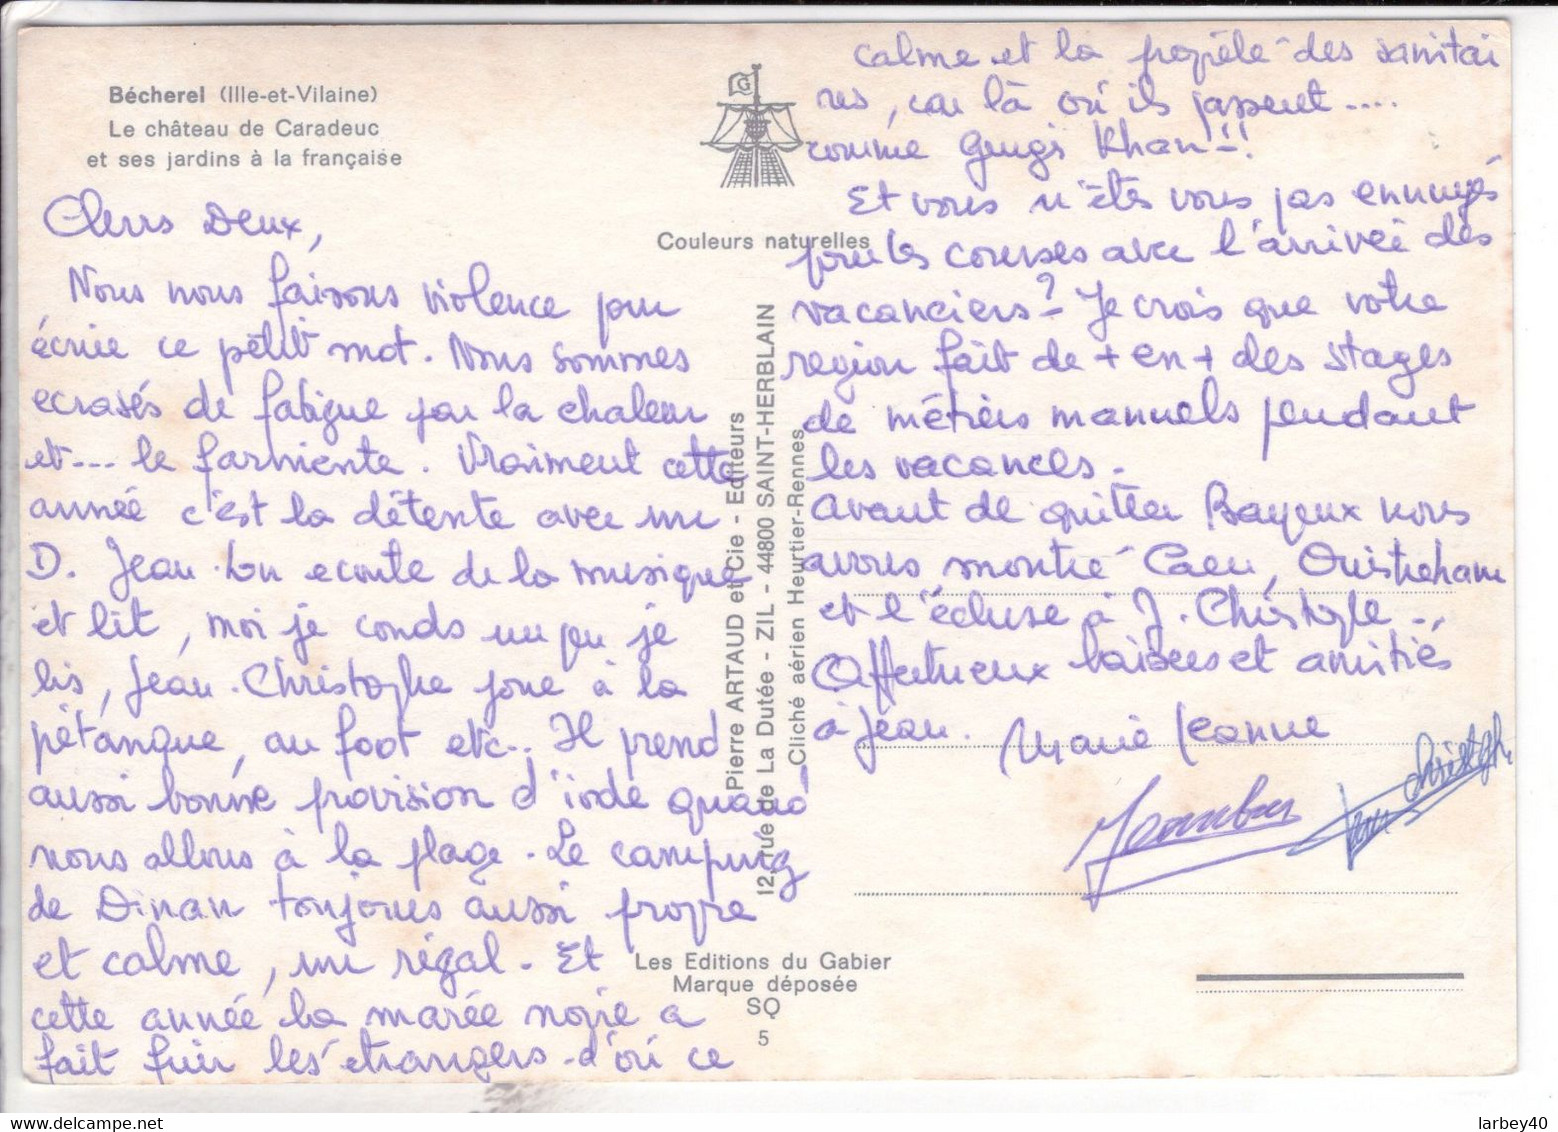 Bécherel (Ille-et-Vilaine)
Le château de Caradeuc
et ses jardins à la française
Chers Deux,
Nous nous faisons violence pour
écrire ce petit mot. Nous sommes
ecrasés de fatigue par la chaleur
et... le farniente. Vraiment cette
année c'est la détente avec un
D. Jean-Lou ecoute de la musique
et lit, moi je couds un peu je
lis, Jean-Christophe joue à la
pétanque, au foot etc... Il prend
aussi bonne provision d'iode quand
nous allons à la plage. Le camping
de Dinan toujours aussi propre
et calme, un régal. Et
cette année la marée noire a
fait fuir les étrangers d'où ce
G
Couleurs naturelles
Pierre ARTAUD et Cie - Editeurs
12, rue de La Dutée - ZIL - 44800 SAINT-HERBLAIN
Cliché aérien Heurtier-Rennes
Les Editions du Gabier
Marque déposée
SQ
5
calme et la propreté des sanitai
res, car là où ils passent....
comme Gengis Khan!!
Et vous n'êtes vous pas ennuyés
pour les courses avec l'arrivée des
vacanciers? Je crois que votre
region fait de + en + des stages
de métiers manuels pendant
les vacances.
Avant de quitter Bayeux nous
avons montré Caen, Ouistreham
et l'écluse à J. Christophe...
Affectueux baisers et amitiés
à Jean. Marie Jeanne
Jean Christophe
larbey40